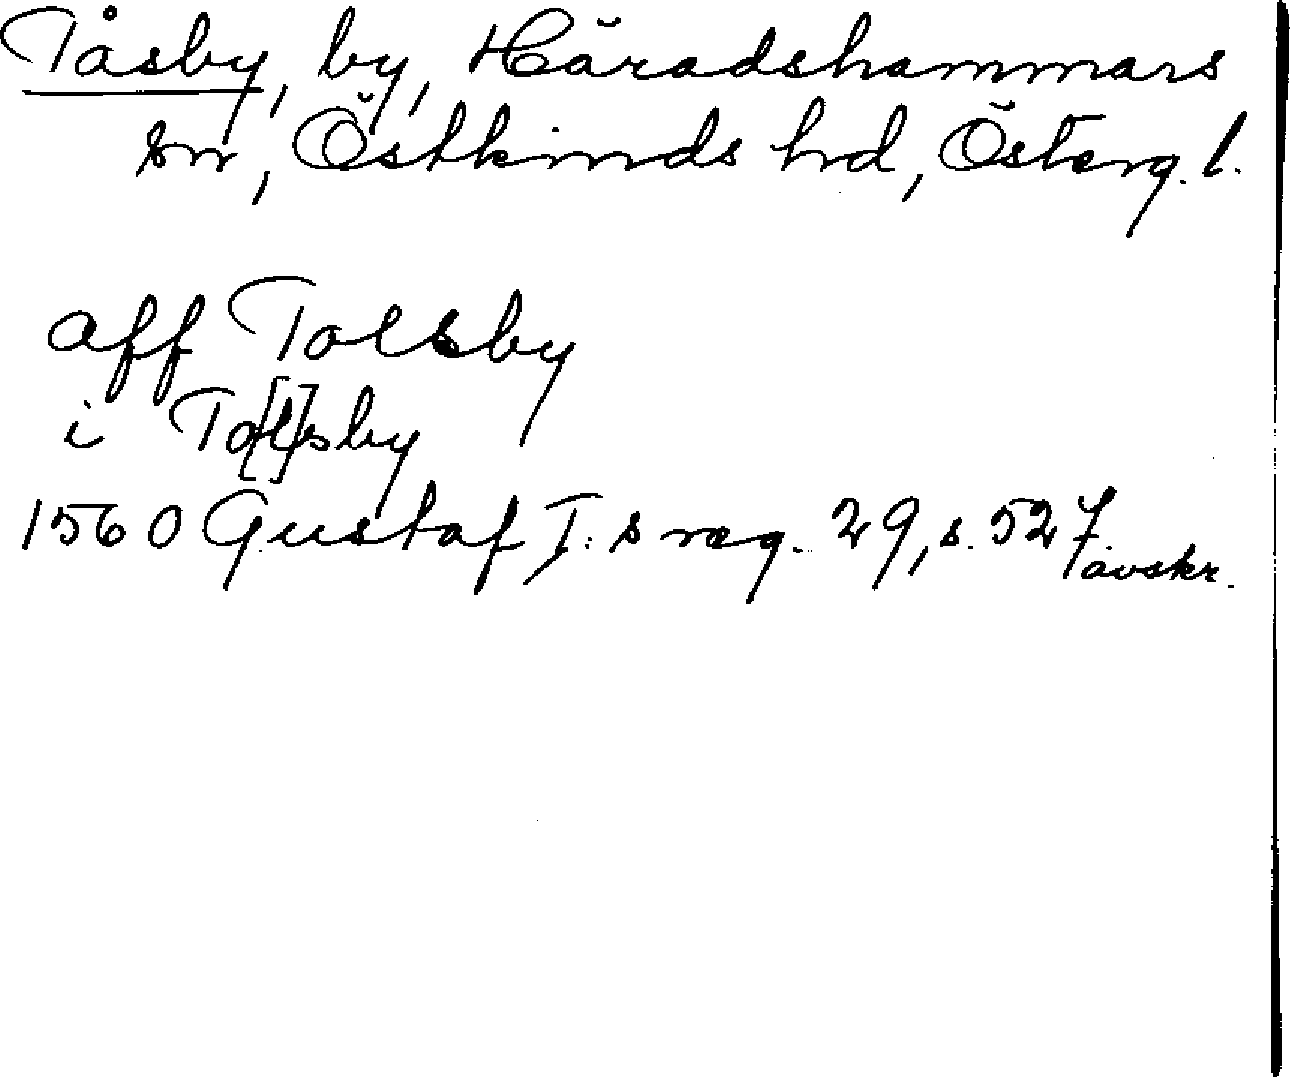 Tåsby, by, Häradshammars
sn, Östkinds hd, Österg. l.
aff Tolsby
i To[l]sby
1560 Gustaf I:s reg. 29, s. 527 avskr.